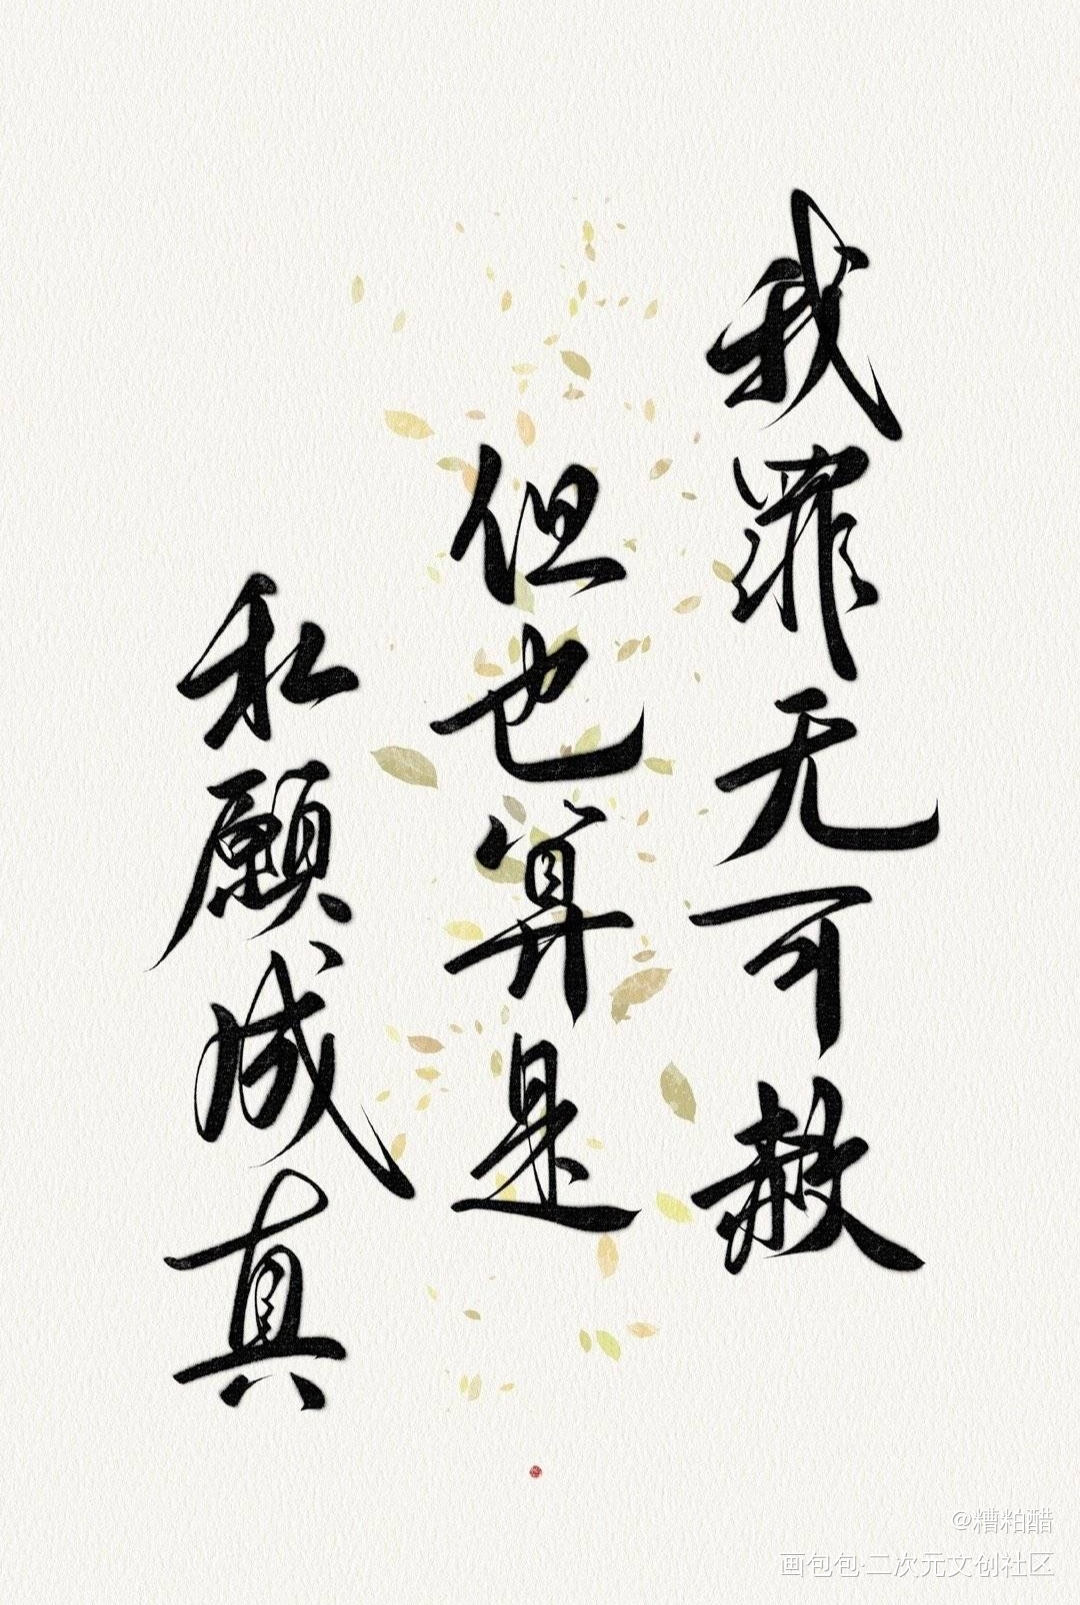 我罪无可赦
但也算是
私願成真
@糟粕醋
画包包·二次元文创社区